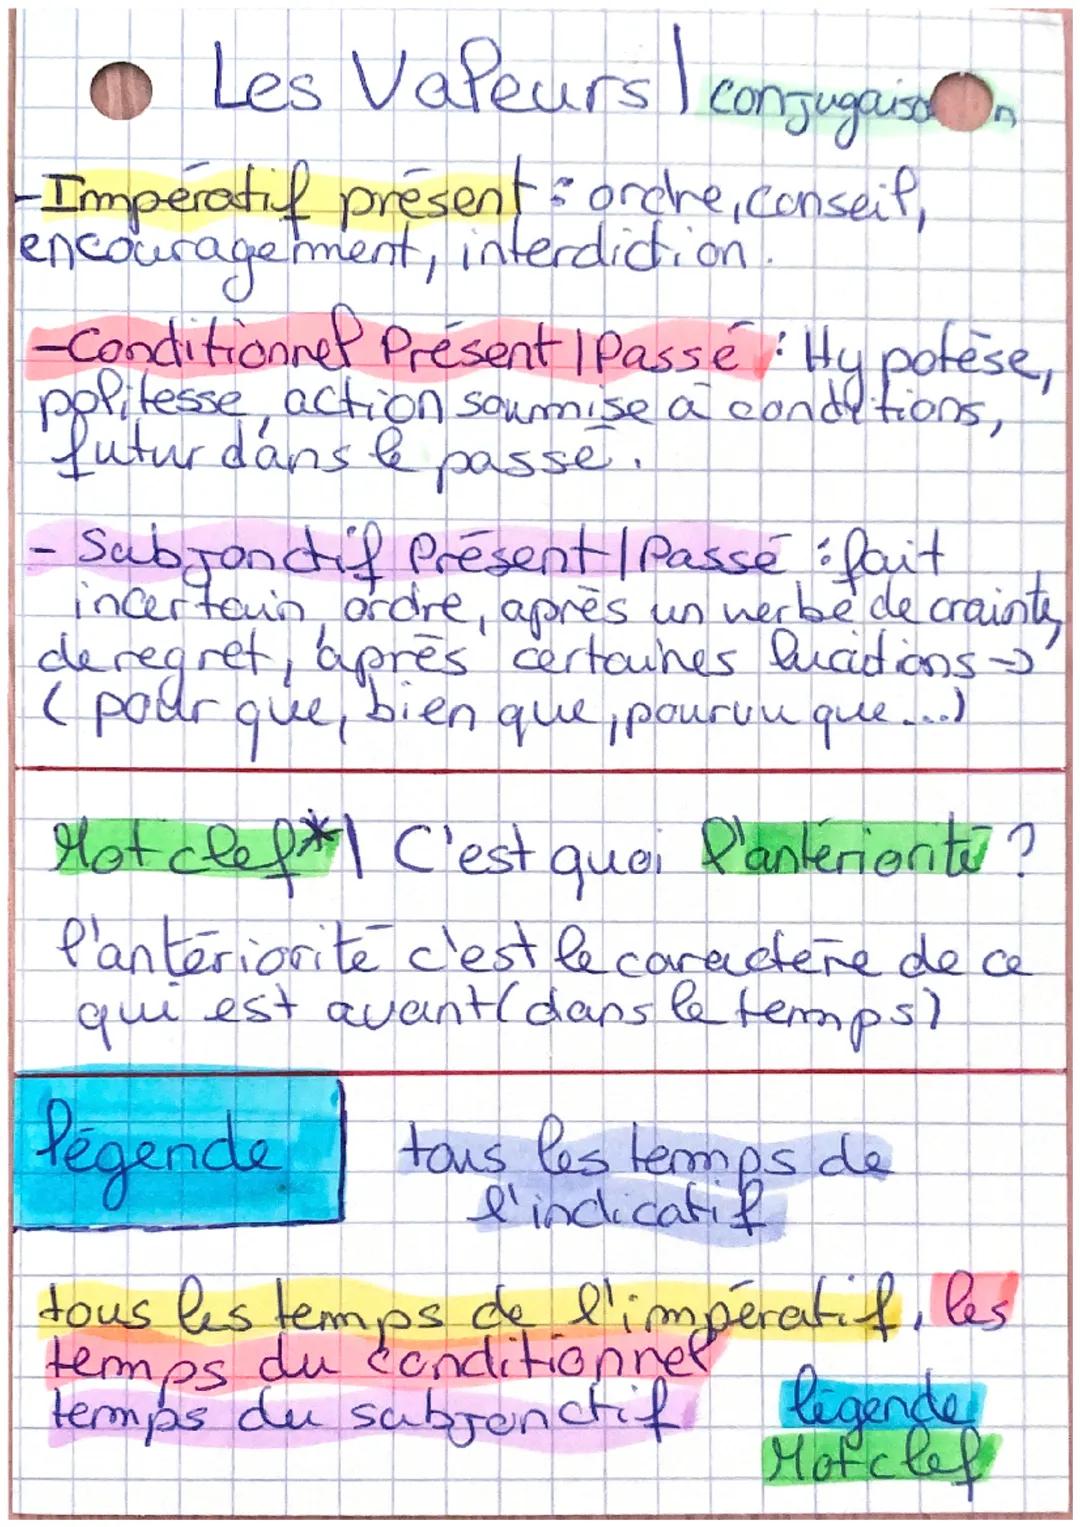 Les Valeurs | conjugaison
-Impératif présent : ordre, conseil,
encouragement, interdiction.
-Conditionnel Présent | Passé : Hypotèse,
politesse, action soumise à conditions,
futur dans le passé.
- Subjonctif Présent | Passé : fait
incertain, ordre, après un verbe de crainte,
de regret, après certaines lucutions →
(pour que, bien que, pourvu que...)
Mot clef* | C'est quoi l'antériorité ?
l'antériorité c'est le caractère de ce
qui est avant (dans le temps)
légende
tous les temps de
l'indicatif
tous les temps de l'impératif, les
temps du conditionnel
temps du subjonctif
légende
Mot clef